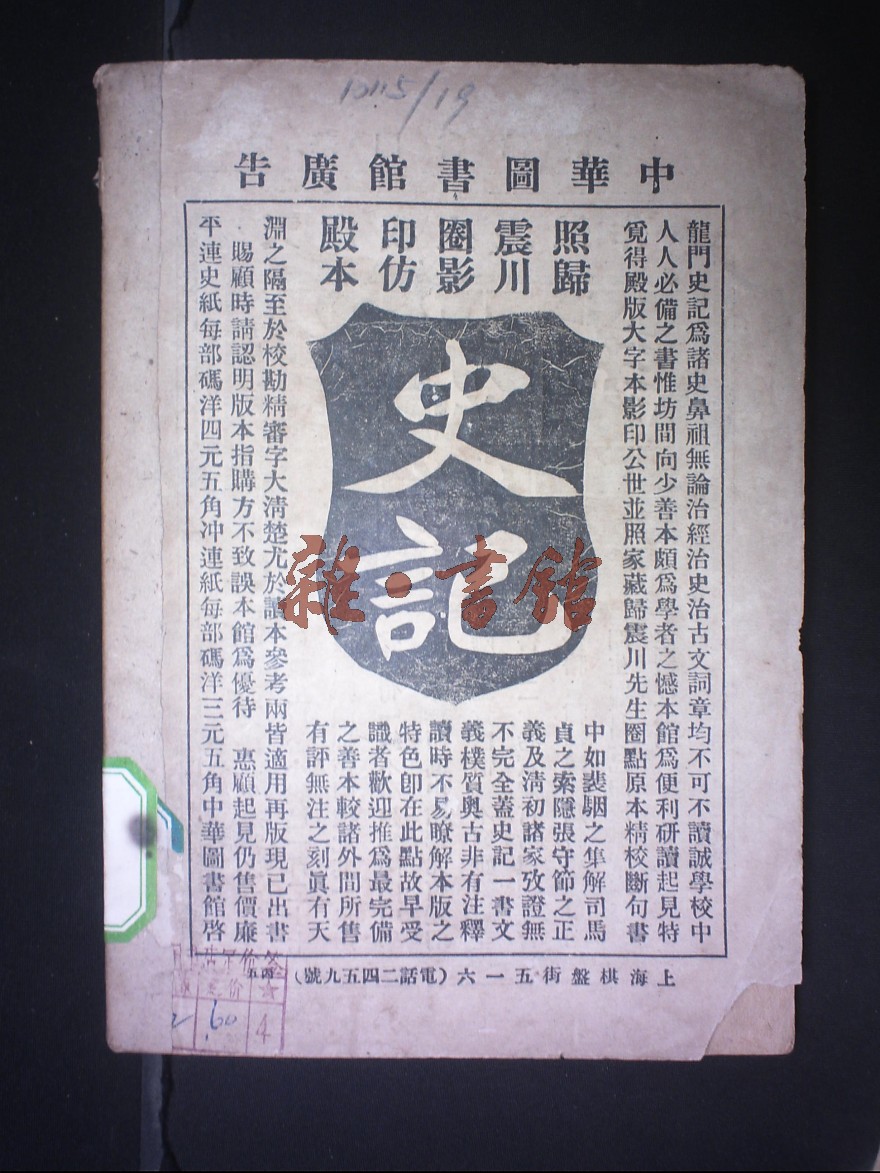 中華圖書館廣告
龍門史記爲諸史鼻祖無論治經治史治古文詞章均不可不讀誠學校中
人人必備之書惟坊間向少善本頗爲學者之憾本館爲便利研讀起見特
覓得殿版大字本影印公世並照家藏歸震川先生圈點原本精校斷句書
照歸
震川
圈影
印仿
殿本
史記
中如裴駰之集解司馬
貞之索隱張守節之正
義及淸初諸家攷證無
不完全蓋史記一書文
義樸質奧古非有注釋
讀時不易瞭解本版之
特色卽在此點故早受
識者歡迎推爲最完備
之善本較諸外間所售
有評無注之刻眞有天
淵之隔至於校勘精審字大淸楚尤於讀本參考兩皆適用再版現已出書
賜顧時請認明版本指購方不致誤本館爲優待 惠顧起見仍售價廉
平連史紙每部碼洋四元五角冲連紙每部碼洋三元五角中華圖書館啓
上海棋盤街五一六(電話二四五九號)
雜·書館
60
4